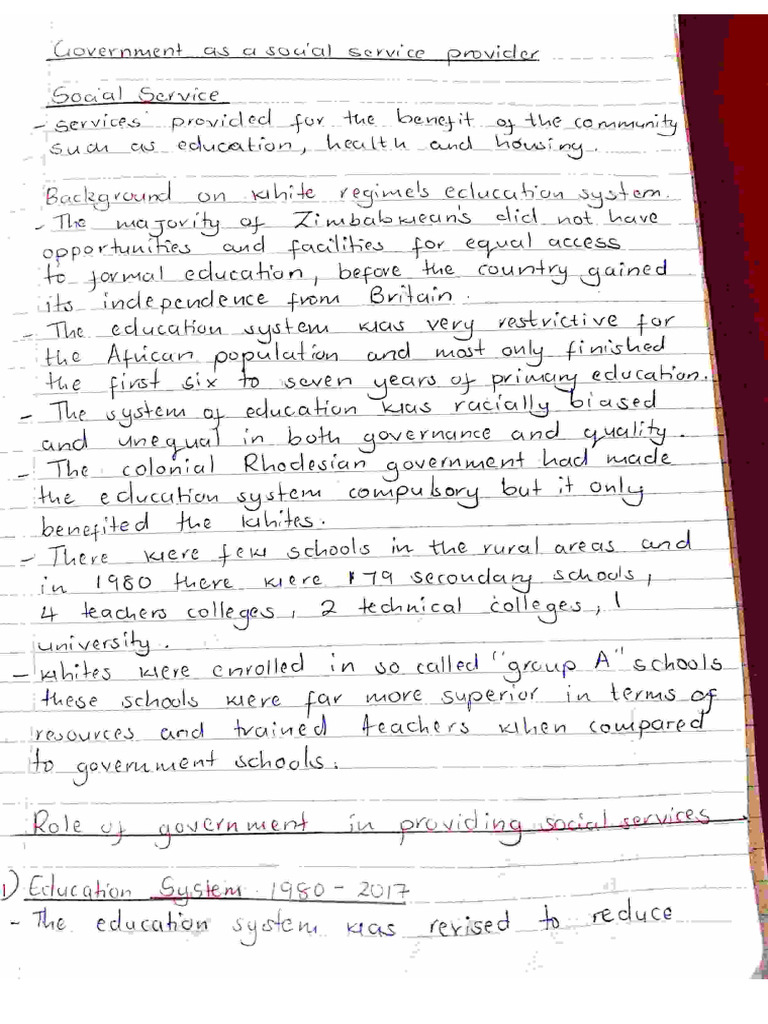 Government as a social service provider
Social Service
- services provided for the benefit of the community
such as education, health and housing.
Background on white regime's education system.
- The majority of Zimbabwean's did not have
opportunities and facilities for equal access
to formal education, before the country gained
its independence from Britain.
- The education system was very restrictive for
the African population and most only finished
the first six to seven years of primary education.
- The system of education was racially biased
and unequal in both governance and quality.
- The colonial Rhodesian government had made
the education system compulsory but it only
benefited the whites.
- There were few schools in the rural areas and
in 1980 there were 179 secondary schools,
4 teachers colleges, 2 technical colleges, 1
university.
- whites were enrolled in so called "group A" schools
these schools were far more superior in terms of
resources and trained teachers when compared
to government schools.
Role of government in providing social services
1) Education System 1980 - 2017
- The education system was revised to reduce